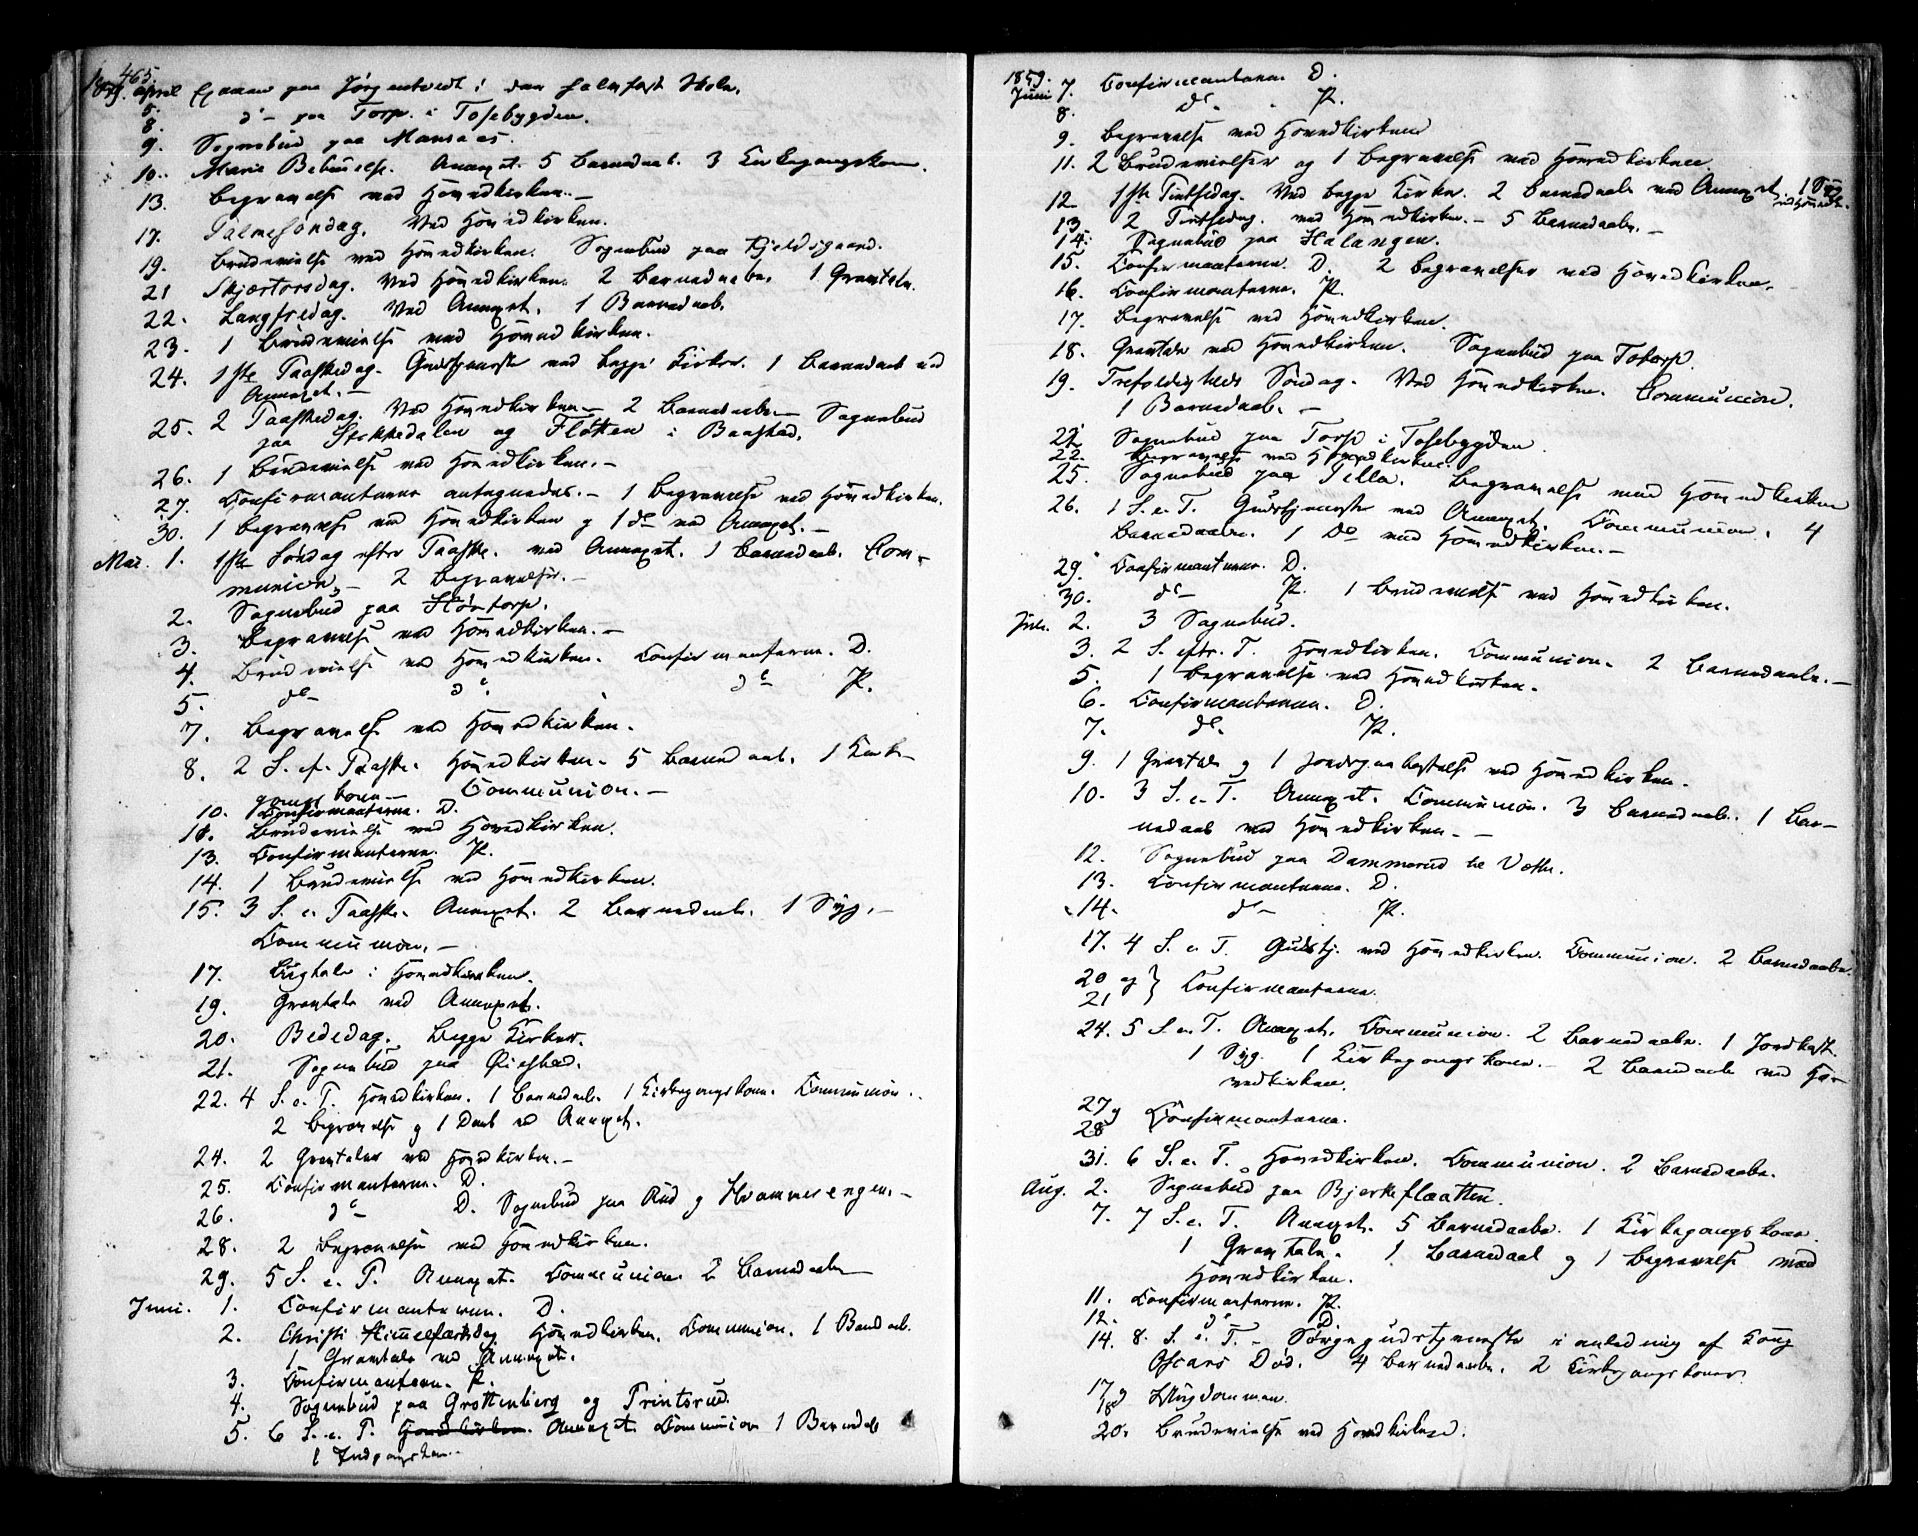 465.
1859. April Examen paa Jørgentvedt i den halvfast Skole.
5.
8. do paa Torp i Tosebygden.
9. Sognebud paa Mansaas.
10. Marie Bebudelse. Annexet. 5 Barnedaab. 3 Kirkegangskon.
13. Begravelse ved Hovedkirken. —
17. Palmesöndag. Ved Hovedkirken.
19. Brudevielse ved Hovedkirken. Sognebud paa Kjeldsgaard.
21 Skjærtorsdag. Ved Hovedkirken. 2 Barnedaabe. 1 Gravtale.
22. Langfredag. Ved Annexet. 1 Barnedaab.
23. 1 Brudevielse ved Hovedkirken.
24. 1ste Paaskedag. Gudstjeneste ved begge Kirker. 1 Barnedaab ved
Annexet. —
25. 2 Paaskedag. Ved Hovedkirken — 2 Barnedaabe — Sognebud
paa Stokkedalen og Fløtten i Baastad.
26. 1 Brudevielse ved Hovedkirken. —
27. Confirmanterne antegnedes. — 1 Begravelse ved Hovedkirken.
30. 1 Begravelse ved Hovedkirken og 1 do ved Annexet. —
Mai. 1. 1ste Söndag efter Paaske. ved Annexet. 1 Barnedaab. Com-
munion. — 2 Begravelser. —
2. Sognebud paa Høntorp.
3. Begravelse ved Hovedkirken. —
4. Brudevielse ved Hovedkirken. Confirmanterne. D.
5. do do do P.
7. Begravelse ved Hovedkirken.
8. 2 S. ef. Paaske. Hovedkirken. 5 Barnedaab. 1 Kirke-
gangskone — Communion. —
10. Confirmanterne. D.
11. Brudevielse ved Hovedkirken.
13. Confirmanterne. P.
14. 1 Brudevielse ved Hovedkirken.
15. 3 S. e. Paaske. Annexet. 2 Barnedaab. 1 Syg. —
Communion. —
17. Liigtale i Hovedkirken.
19. Gravtale ved Annexet.
20. Bededag. Begge Kirker.
21. Sognebud paa Øiestad.
22. 4 S. e. P. Hovedkirken. 1 Barnedaab. 1 Kirkegangskone. Communion.
2 Begravelse og 1 Daab ved Annexet.
24. 2 Gravtaler ved Hovedkirken. —
25. Confirmanterne. D.
26. do D. Sognebud paa Rud og Hvammersengen. —
28. 2 Begravelse ved Hovedkirken.
29. 5 S. e. P. Annexet. Communion 2 Barnedaabe
Juni. 1. Confirmanterne. D.
2. Christi Himmelfartsdag Hovedkirken. Communion. 1 Barndaab.
1 Gravtale ved Annexet.
3. Confirmanterne. P.
4. Sognebud paa Grottenberg og Printsrud.
5. 6 S. e. P. Hovedkirken. Annexet Communion 1 Barnedaab
1 Indgangskone.
1859.
Juni 7. Confirmanterne D.
8. do P.
9. Begravelse ved Hovedkirken
11. 2 Brudevielser og 1 Begravelse ved Hovedkirken
12. 1ste Pintsedag. Ved begge Kirker. 2 Barnedaabe ved Annexet. 1 Syg
ved Hovedk.
13 2 Pintsedag. ved Hovedkirken. — 5 Barnedaabe. —
14. Sognebud paa Halangen.
15. Confirmanterne. D. 2 Begravelser ved Hovedkirken.
16. Confirmanterne. P.
17. Begravelse ved Hovedkirken.
18. Gravtale ved Hovedkirken. Sognebud paa Totorp.
19. Trefoldigheds Söndag. Ved Hovedkirken. Communion.
1 Barnedaab. —
21 Sognebud paa Torp i Tosebygden
22. Begravelse ved Hovedkirken.
25. Sognebud paa Tella. Begravelse ved Hovedkirken
26. 1 S. e. T. Gudstjeneste ved Annexet. Communion. 4
Barnedaabe. 1 Do ved Hovedkirken. —
29. Confirmanterne. D.
30. do P. 1 Brudevielse ved Hovedkirken.
Juli. 2. 3 Sognebud.
3. 2 S. eftr. T. Hovedkirken. Communion. 2 Barnedaabe. —
5. 1 Begravelse ved Hovedkirken.
6. Confirmanterne. D.
7. do. P.
9. 1 Gravtale og 1 Jordspaakastelse ved Hovedkirken.
10. 3 S. e. T. Annexet. Communion. 3 Barnedaab. 1 Bar-
nedaab ved Hovedkirken. —
12. Sognebud paa Dammerud
13. Confirmanterne. D.
14. do P.
17. 4 S. e. T. Gudstj. ved Hovedkirken. Communion. 2 Barnedaabe.
20 og } Confirmanterne.
21
24. 5 S. e. T. Annexet. Communion. 2 Barnedaabe. 1 Jordkast.
1 Syg. 1 Kirkegangskone. — 2 Barnedaab ved Ho-
vedkirken.
27 og Confirmanterne.
28
31. 6 S. e. T. Hovedkirken. Communion. 2 Barnedaabe.
Aug. 2. Sognebud paa Bjerkeflaatten.
7. 7 S. e. T. Annexet. 5 Barnedaabe. 1 Kirkegangskone.
1 Gravtale. 1 Barnedaab og 1 Begravelse ved
Hovedkirken.
11. Confirmanterne. P.
12. do D.
14. 8. S. e. T. — Sørgegudstjeneste i anledning af Kong
Oscars Död. 4 Barnedaabe. 2 Kirkegangskoner.
17
18
20. Brudevielse ved Hovedkirken.